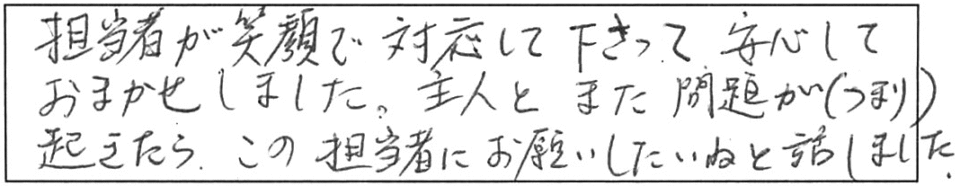 担当者が笑顔で対応して下さって安心して
おまかせしました。主人とまた問題が(つまり)
起きたら、この担当者にお願いしたいねと話しました.